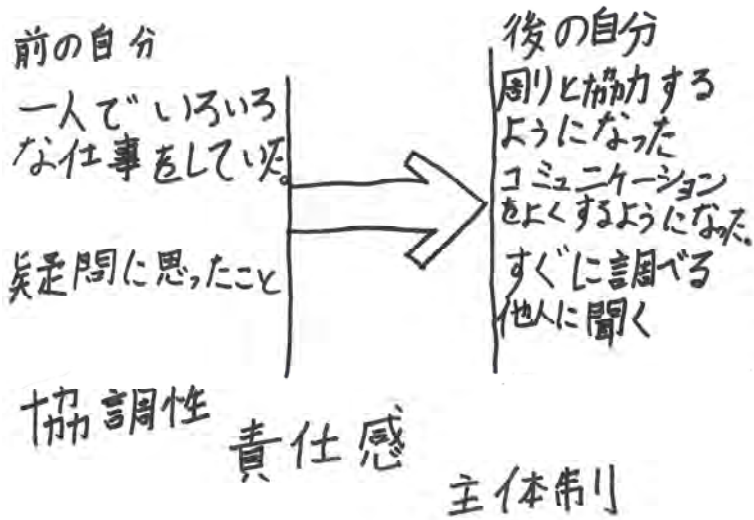 前の自分
一人でいろいろ
な仕事をしていた。
疑問に思ったこと
後の自分
周りと協力する
ようになった
コミュニケーション
をよくするようになった。
すぐに調べる
他人に聞く
協調性
責任感
主体制